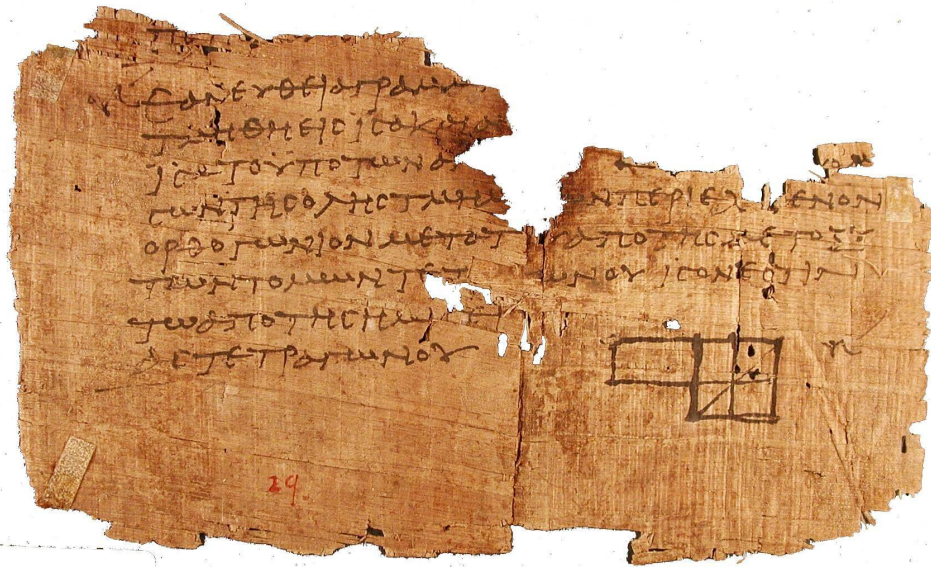 ΕΑΝΕΥΘΕΙΑΓΡΑΜΜ
ΤΜΗΘΗΕΙϹΙϹΑΚΑΙΑ
ΙϹΑΤΟΥΠΟΤΩΝΑ
ΤΩΝΤΗϹΟΛΗϹΤΜΗΜ ΩΝΠΕΡΙΕΧ ΜΕΝΟΝ
ΟΡΘΟΓΩΝΙΟΝΜΕΤΟΤ ΑΠΟΤΗϹΜΕΤΟΞΥ
ΤΩΝΤΟΜΩΝΤΕΤ ΩΝΟΥΙϹΟΝΕϹΤΙΝ
ΤΩΑΠΟΤΗϹΗΜΙ ΕΙ
ΑϹΤΕΤΡΑΓΩΝΟΥ
29.